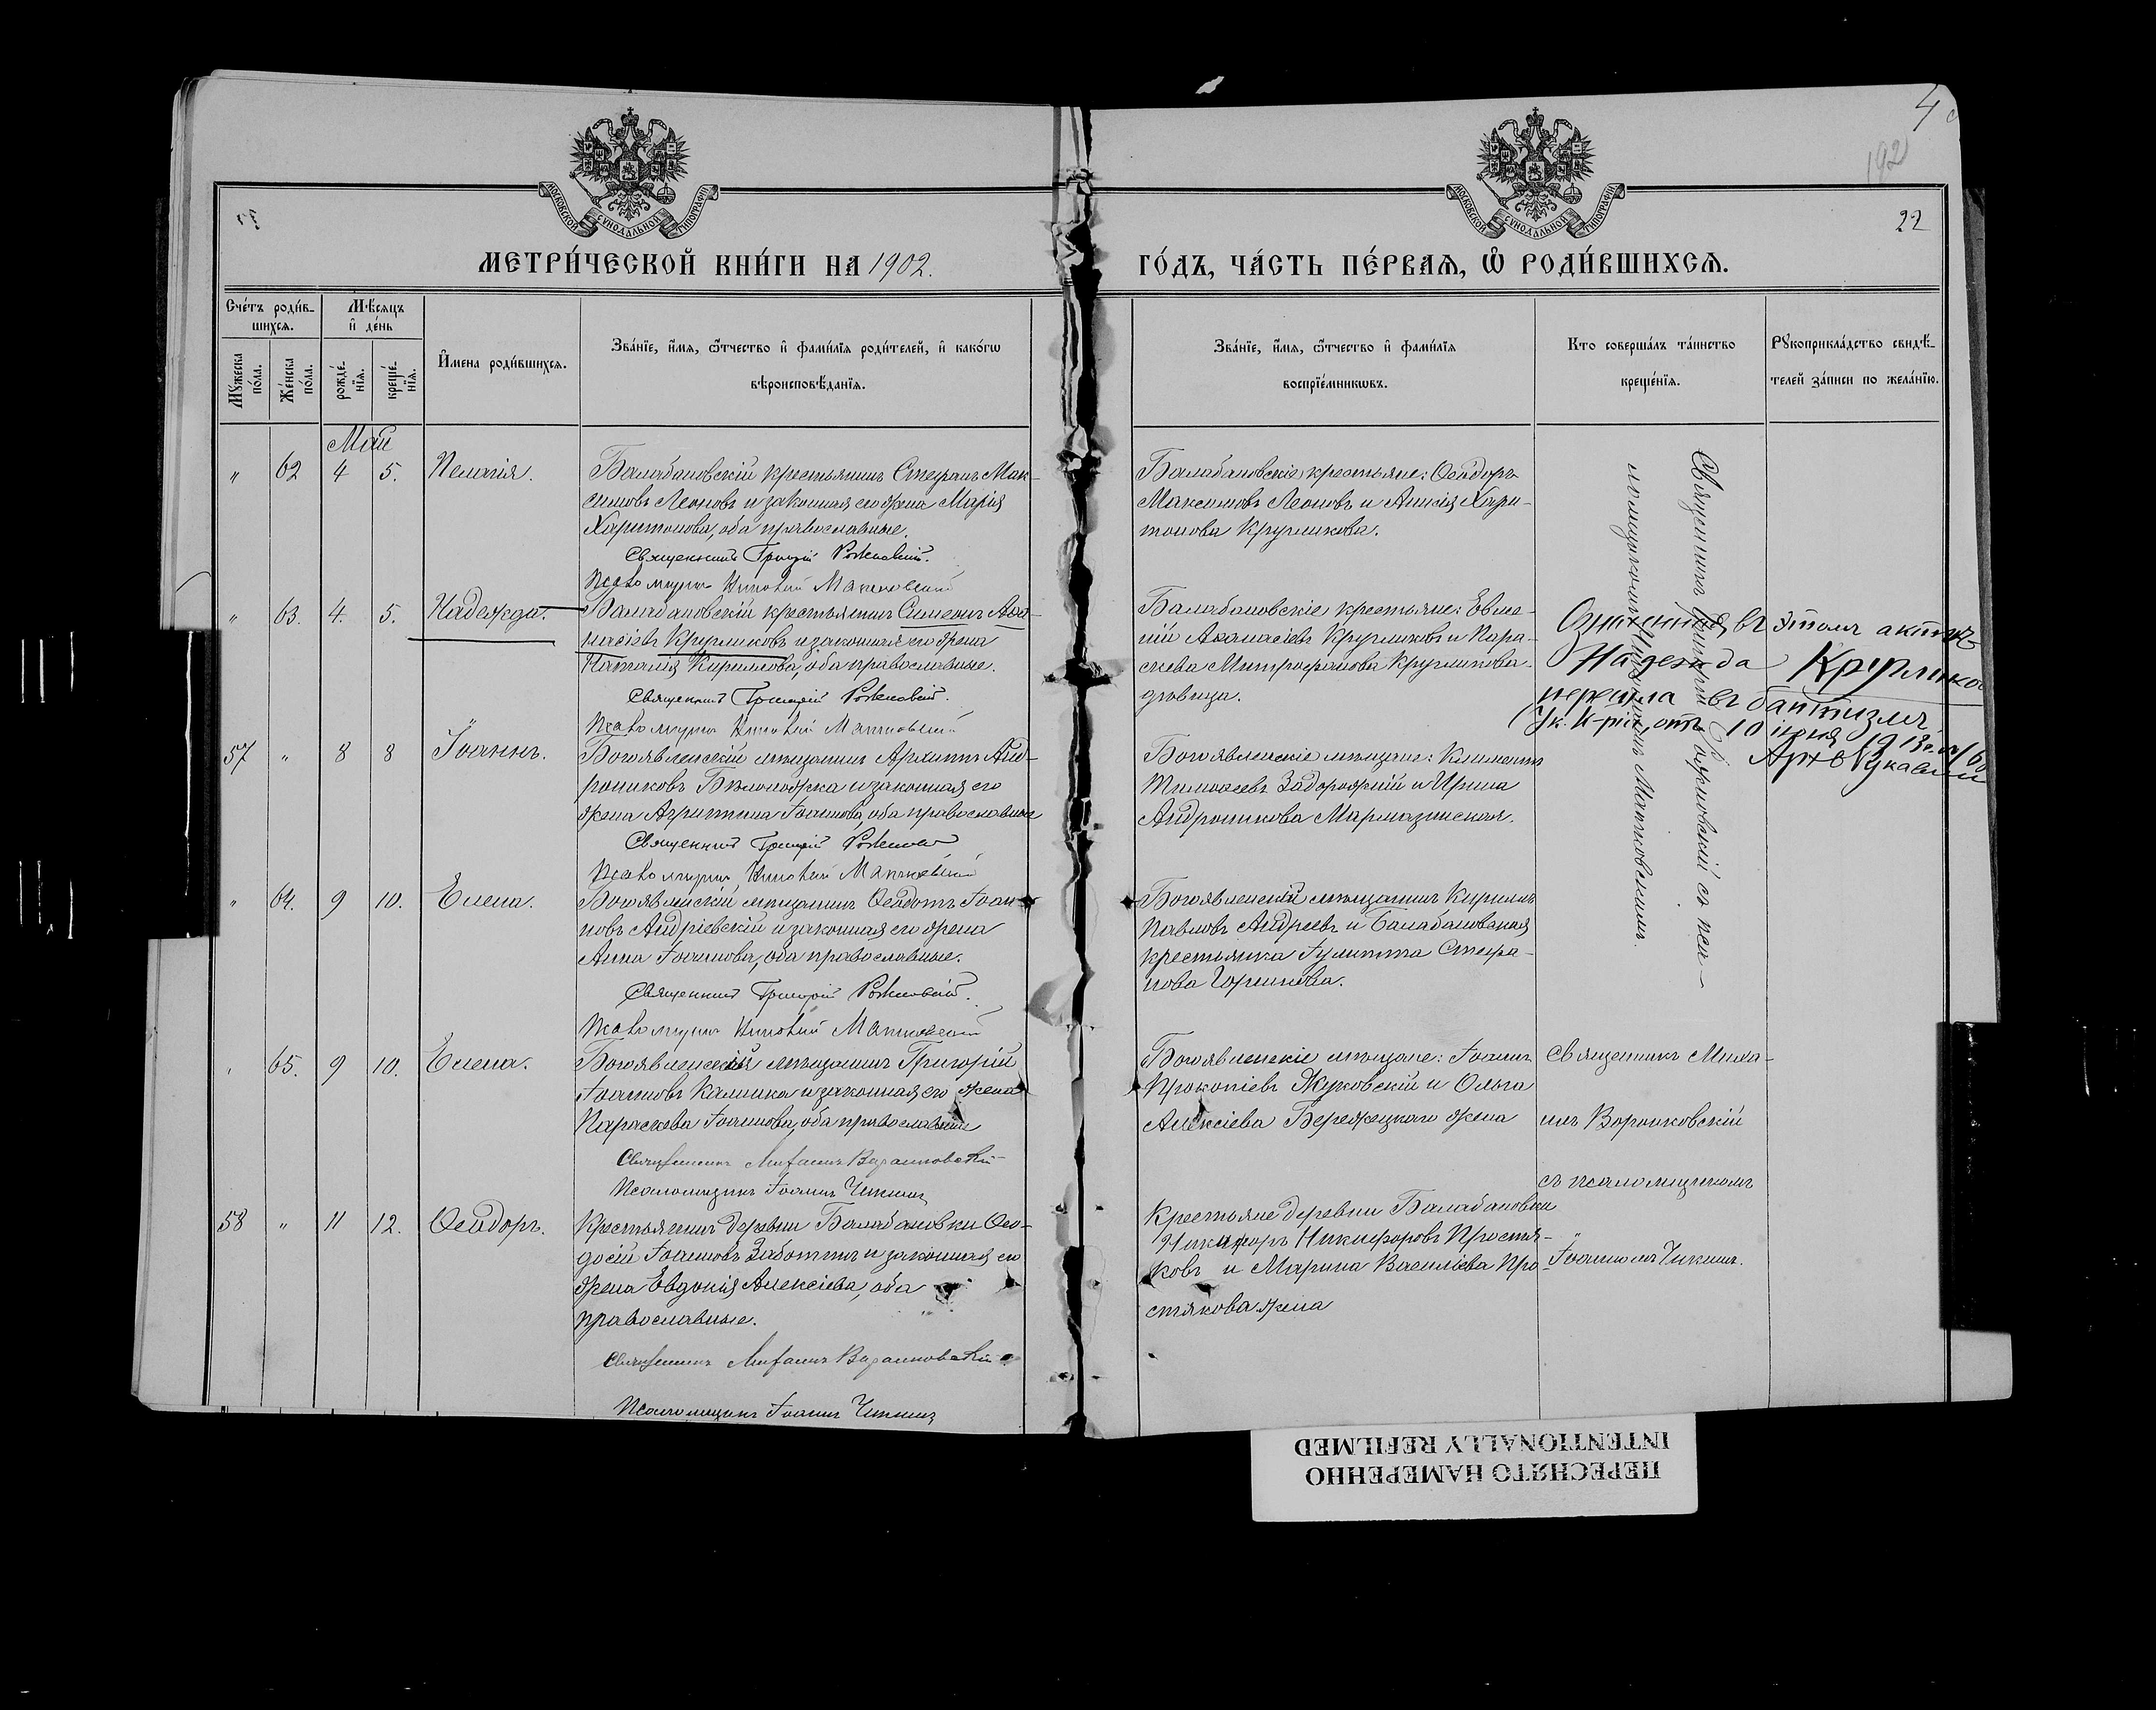 4
192
22
МОСКОВСКОЙ СѴНОДАЛЬНОЙ ТИПОГРАФІИ
МОСКОВСКОЙ СѴНОДАЛЬНОЙ ТИПОГРАФІИ
МЕТРИ́ЧЕСКОЙ КНИ́ГИ НА 1902.
ГО́ДЪ, ЧА́СТЬ ПЕ́РВАѦ, Ѡ҆ РОДИ́ВШИХСѦ.
Сче́тъ роди́в-
шихсѧ.
Мꙋ́жеска по́ла.
Же́нска по́ла.
Мѣ́сѧцъ
и҆ де́нь
рожде́-
нїѧ.
креще́-
нїѧ.
И҆мена роди́вшихсѧ.
Зва́нїе, и҆́мѧ, ѻ҆́тчество и҆ фами́лїѧ роди́телей, и҆ како́гѡ
вѣроисповѣ́данїѧ.
Зва́нїе, и҆́мѧ, ѻ҆́тчество и҆ фами́лїѧ
воспрїе́мникѡвъ.
Кто соверша́лъ та́инство
креще́нїѧ.
Рꙋкоприкла́дство свидѣ́-
телей за́писи по жела́нїю.
Май
" 62 4 5. Пелагія.
Балабановскій крестьянинъ Стефанъ Мак-
симовъ Леоновъ и законная его жена Марія
Харитонова, оба православные.
Священникъ Григорій Рожновскій.
Псаломщикъ Матковскій
Балабановскіе крестьяне: Ѳеодоръ
Максимовъ Леоновъ и Анисія Хари-
тонова Кругликова.
" 63. 4. 5. Надежда.
Балабановскій крестьянинъ Симеонъ Аѳа-
насіевъ Кругликовъ и законная его жена
Наталія Кириллова, оба православные.
Священникъ Григорій Рожновскій.
Псаломщикъ Матковскій
Балабановскіе крестьяне: Евме-
ній Аѳанасіевъ Кругликовъ и Пара-
скева Митрофанова Кругликова
дѣвица.
Означенная въ этомъ актѣ
Надежда Кругликова
перешла въ баптизмъ
(Ук. К-ріи, отъ 10 іюня 1913 г.
57 " 8 8 Іоаннъ.
Богоявленскій мѣщанинъ Архипъ Анд-
рониковъ Бѣлоножка и законная его
жена Агриппина Іоаннова, оба православные
Священникъ Григорій Рожновскій
Псаломщикъ Матковскій
Богоявленскіе мѣщане: Климентъ
Тимоѳеевъ Задорожній и Ирина
Андроникова Мармазинская.
" 64. 9 10. Елена.
Богоявленскій мѣщанинъ Ѳеодотъ Іоан-
новъ Андріевскій и законная его жена
Анна Іоаннова, оба православные.
Священникъ Григорій Рожновскій.
Псаломщикъ Матковскій
Богоявленскій мѣщанинъ Кириллъ
Павловъ Андреевъ и Балабановская
крестьянка Іулитта Стефа-
нова
Священникъ Григорій Рожновскій съ пса-
ломщикомъ Матковскимъ.
" 65. 9 10. Елена.
Богоявленскій мѣщанинъ Григорій
Іоанновъ Калиика и законная его жена
Параскева Іоаннова, оба православные
Священникъ Михаилъ Воронковскій
Псаломщикъ Іоаннъ Чикинъ
Богоявленскіе мѣщане: Іоаннъ
Прокопіевъ Жуковскій и Ольга
Алексіева Бережецкаго жена
Священникъ Миха-
илъ Воронковскій
съ псаломщикомъ
Іоанномъ Чикинъ.
58 " 11 12. Ѳеодоръ.
Крестьянинъ деревни Балабановки Ѳео-
досій Іоанновъ Заботинъ и законная его
жена Евдокія Алексіева, оба
православные.
Священникъ Михаилъ Воронковскій
Псаломщикъ Іоаннъ Чикинъ
Крестьяне деревни Балабановки
Никифоръ Никифоровъ Простя-
ковъ и Марина Васильева Про-
стякова жена
ПЕРЕСНЯТО НАМЕРЕННО
INTENTIONALLY REFILMED